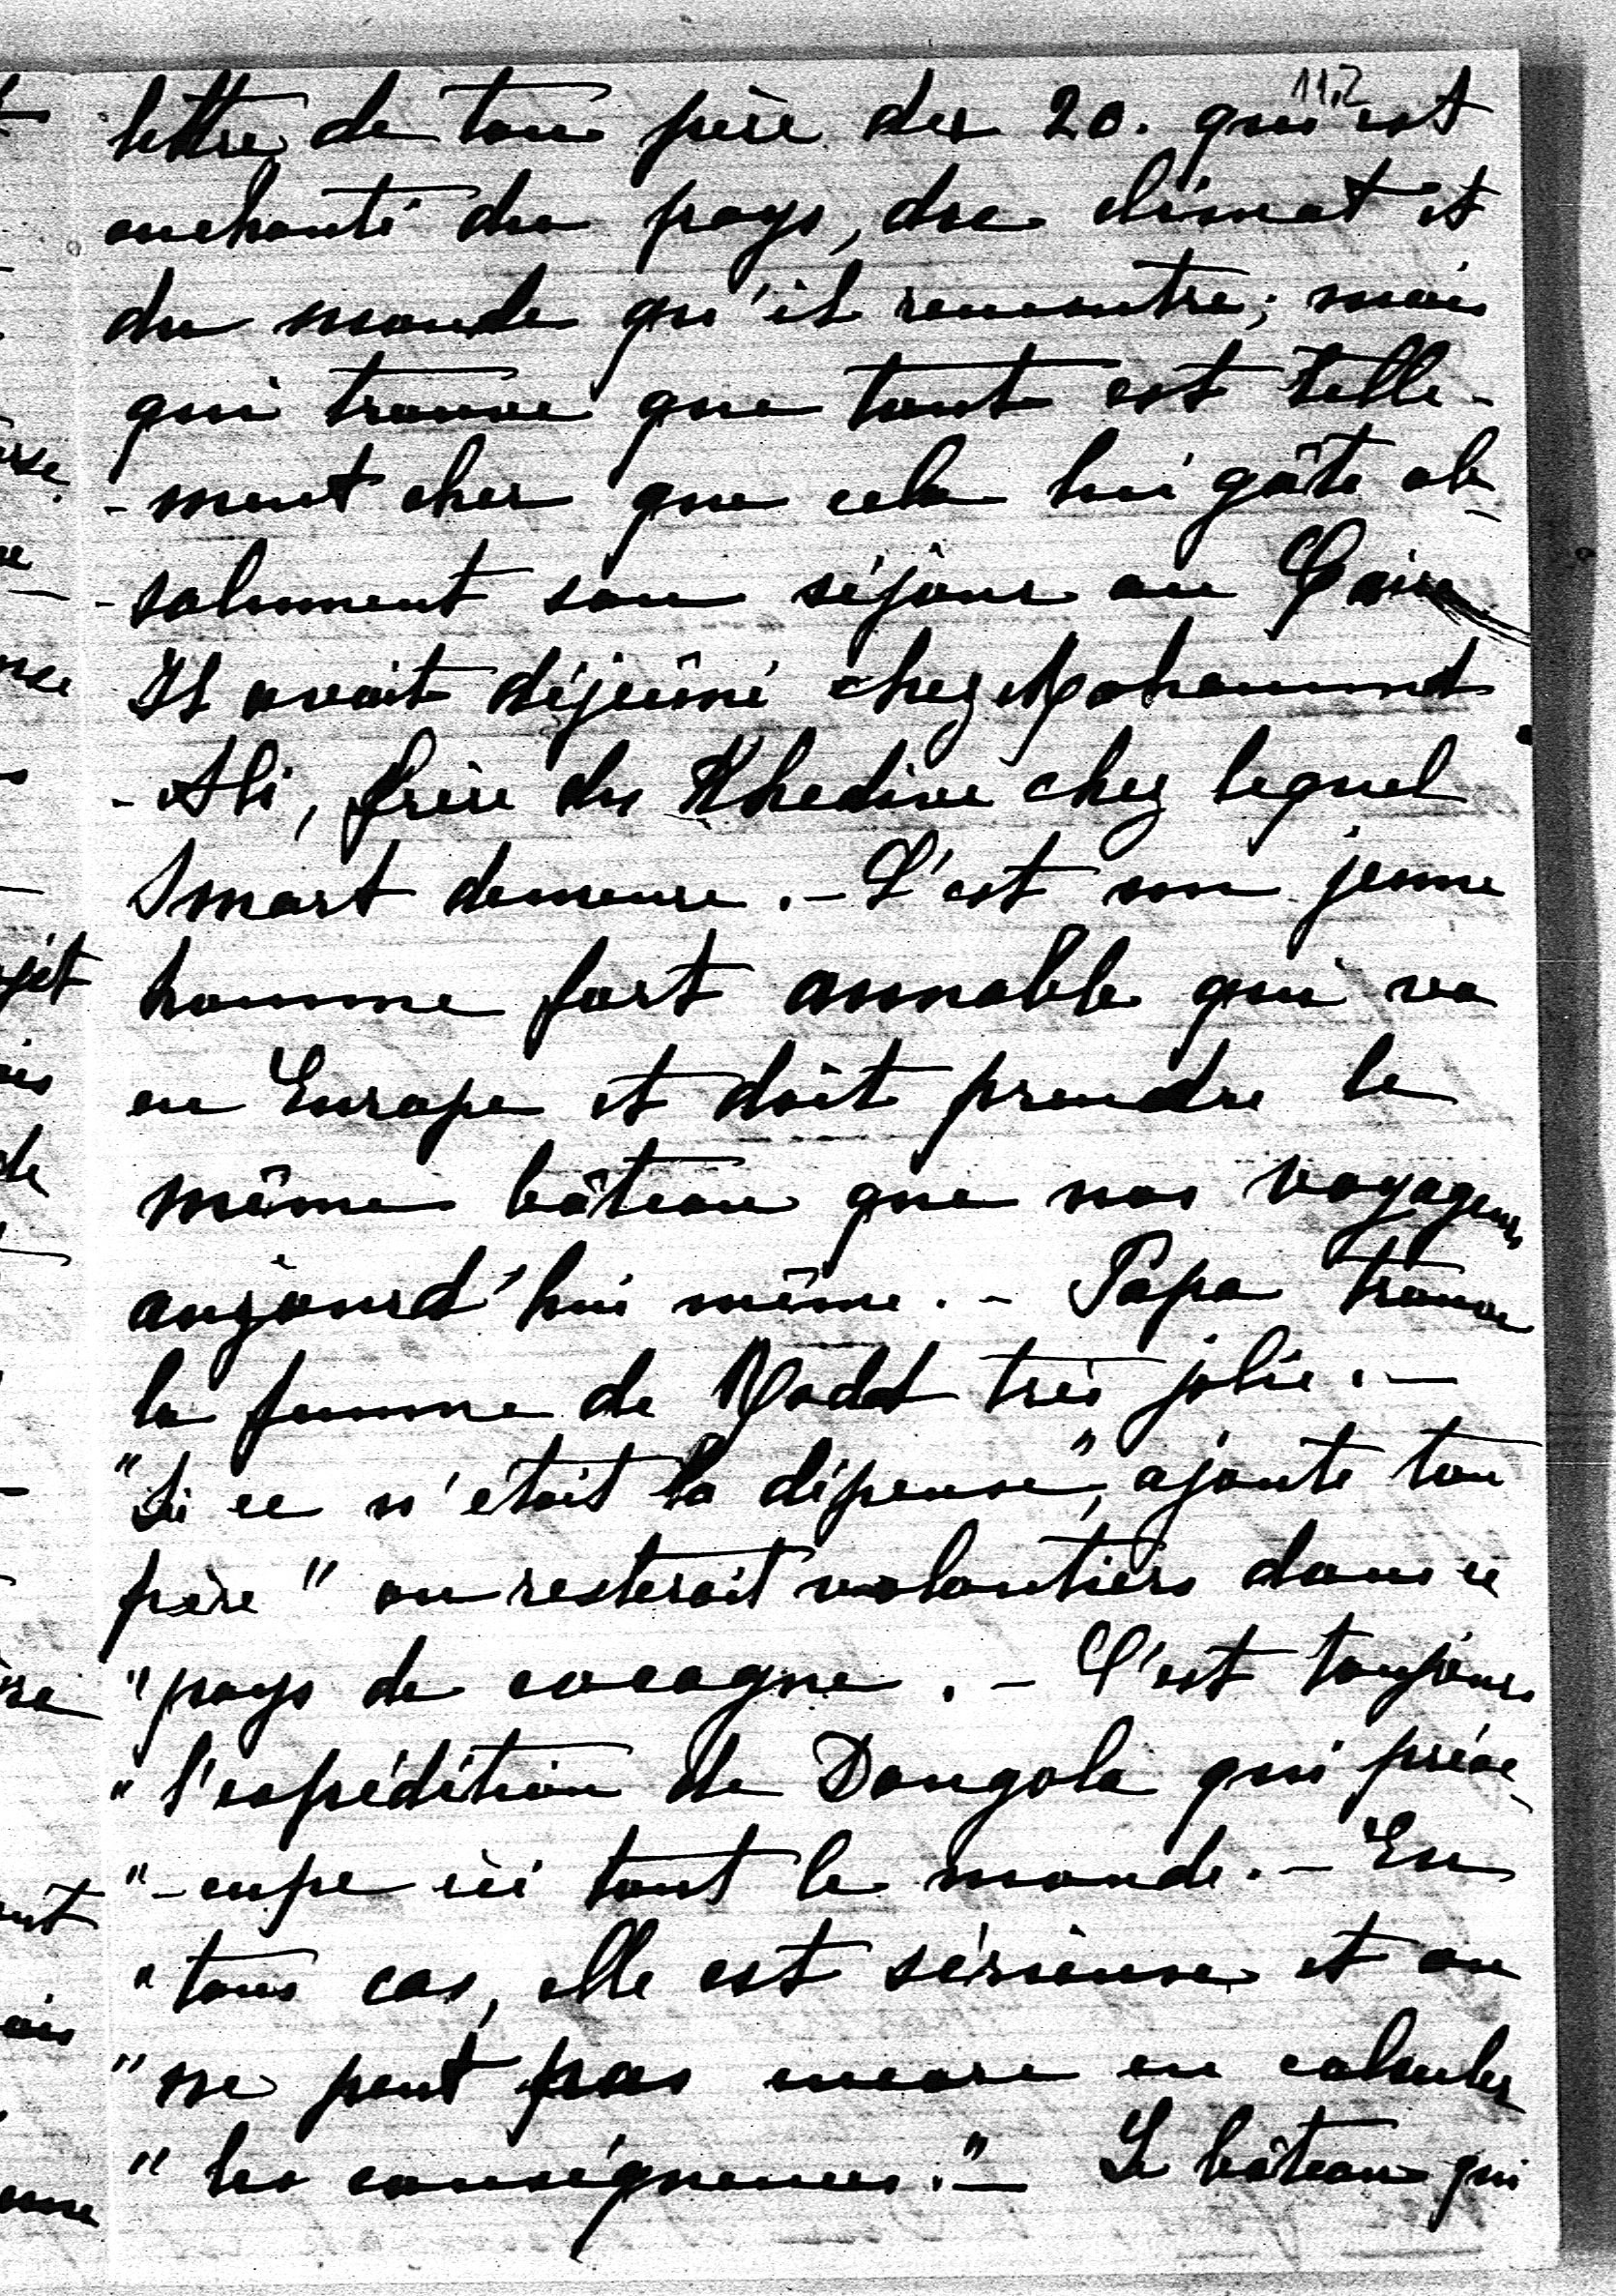 112
lettre de ton père du 20. qui est
enchanté du pays, du climat et
du monde qu'il rencontre; mais
qui trouve que tout est telle-
-ment cher que cela lui gâte ab-
-solument son séjour au Caire
Il avait déjeûné chez Mohammed
-Ali, frère du Khedive chez lequel
Smart demeure.- C'est un jeune
homme fort aimable qui va
en Europe et doit prendre le
même bâteau que nos voyageurs
aujourd'hui même.- Papa trouve
la femme de Madd très jolie.-
"Si ce n'était la dépense", ajoute ton
père "on resterait volontiers dans ce
"pays de cocagne.- C'est toujours
"l'expédition de Dongola qui préoc-
"-cupe ici tout le monde.- En
"tous cas, elle est sérieuse et on
"ne peut pas encore en calculer
"les conséquences."- Le bâteau qui